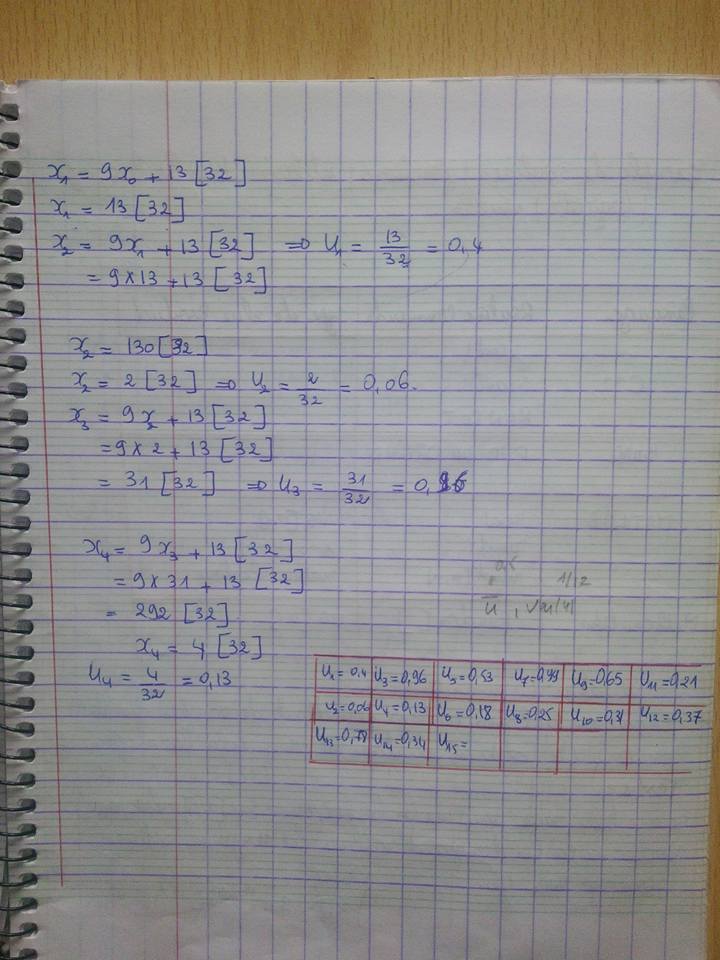 x₁ = 9x₀ + 13 [32]
x₁ = 13 [32]
x₂ = 9x₁ + 13 [32] ⇒ U₁ = 13/32 = 0,4
= 9 × 13 + 13 [32]
x₂ = 130 [32]
x₂ = 2 [32] ⇒ U₂ = 2/32 = 0,06.
x₃ = 9x₂ + 13 [32]
= 9 × 2 + 13 [32]
= 31 [32] ⇒ U₃ = 31/32 = 0,96
x₄ = 9x₃ + 13 [32]
= 9 × 31 + 13 [32]
= 292 [32]
x₄ = 4 [32]
U₄ = 4/32 = 0,13
1/12
ū , Var(u)
U₁ = 0,4 U₃ = 0,96 U₅ = 0,53 U₇ = 0,99 U₉ = 0,65 U₁₁ = 0,21
U₂ = 0,06 U₄ = 0,13 U₆ = 0,18 U₈ = 0,25 U₁₀ = 0,31 U₁₂ = 0,37
U₁₃ = 0,78 U₁₄ = 0,34 U₁₅ =